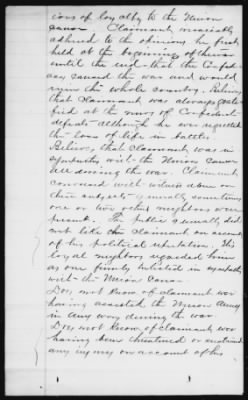 ions of loyalty to the Union
cause Claimant invariably
adhered to the opinions he first
held at the beginning of the war
until the end - that the Confed
acy caused the war and would
ruin the whole country. Believes
that Claimant was always grati
fied at the news of Confederate
defeats although he ever regretted
the loss of life in battles.
Believes that Claimant was in
sympathy with the Union cause
all during the war. Claimant
conversed with witness alone on
their subjects generally sometimes
one or two other neighbors were
present. The public generally did
not like the Claimant on account
of his political reputation. His
loyal neighbors regarded him
as one firmly enlisted in sympathy
with the Union Cause.
Does not know of Claimant ever
having assisted the Union Army
in any way during the war.
Does not know of Claimant ever
having been threatened or
any injury on account of his